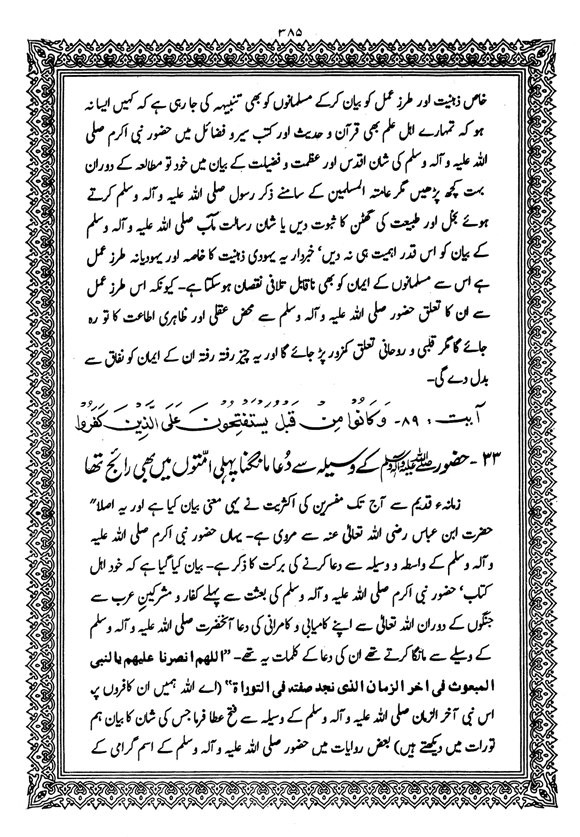 ۳۸۵
خاص ذہنیت اور طرز عمل کو بیان کرکے مسلمانوں کو بھی تنبیہہ کی جا رہی ہے کہ کہیں ایسا نہ
ہو کہ تمہارے اہل علم بھی قرآن و حدیث اور کتب سیر و فضائل میں حضور نبی اکرم صلی
اللہ علیہ و آلہ وسلم کی شان اقدس اور عظمت و فضیلت کے بیان میں خود تو مطالعہ کے دوران
بہت کچھ پڑھیں مگر عامتہ المسلمین کے سامنے ذکر رسول صلی اللہ علیہ و آلہ وسلم کرتے
ہوئے بخل اور طبیعت کی گھٹن کا ثبوت دیں یا شان رسالت مآب صلی اللہ علیہ و آلہ وسلم
کے بیان کو اس قدر اہمیت ہی نہ دیں' خبردار یہ یہودی ذہنیت کا خاصہ اور یہودیانہ طرز عمل
ہے اس سے مسلمانوں کے ایمان کو بھی ناقابل تلافی نقصان ہو سکتا ہے۔ کیونکہ اس طرز عمل
سے ان کا تعلق حضور صلی اللہ علیہ و آلہ وسلم سے محض عقلی اور ظاہری اطاعت کا تو رہ
جائے گا مگر قلبی و روحانی تعلق کمزور پڑ جائے گا اور یہ چیز رفتہ رفتہ ان کے ایمان کو نفاق سے
بدل دے گی۔
آیت : ۸۹۔ وَكَانُوا مِنْ قَبْلُ يَسْتَفْتِحُونَ عَلَى الَّذِينَ كَفَرُوا
۳۳۔ حضور صلی اللہ علیہ وآلہ وسلم کے وسیلہ سے دُعا مانگنا پہلی اُمتوں میں بھی رائج تھا
زمانہء قدیم سے آج تک مفسرین کی اکثریت نے یہی معنی بیان کیا ہے اور یہ اصلا"
حضرت ابن عباس رضی اللہ تعالیٰ عنہ سے مروی ہے۔ یہاں حضور نبی اکرم صلی اللہ علیہ
و آلہ وسلم کے واسطہ و وسیلہ سے دعا کرنے کی برکت کا ذکر ہے۔ بیان کیا گیا ہے کہ خود اہل
کتاب' حضور نبی اکرم صلی اللہ علیہ و آلہ وسلم کی بعثت سے پہلے کفار و مشرکین عرب سے
جنگوں کے دوران اللہ تعالیٰ سے اپنے کامیابی و کامرانی کی دعا آنحضرت صلی اللہ علیہ و آلہ وسلم
کے وسیلے سے مانگا کرتے تھے ان کی دعا کے کلمات یہ تھے۔ "اللهم انصرنا عليهم بالنبى
المبعوث فى اخر الزمان الذى نجد صفته فى التوراة" (اے اللہ ہمیں ان کافروں پر
اس نبی آخر الزمان صلی اللہ علیہ و آلہ وسلم کے وسیلہ سے فتح عطا فرما جس کی شان کا بیان ہم
تورات میں دیکھتے ہیں) بعض روایات میں حضور صلی اللہ علیہ و آلہ وسلم کے اسم گرامی کے